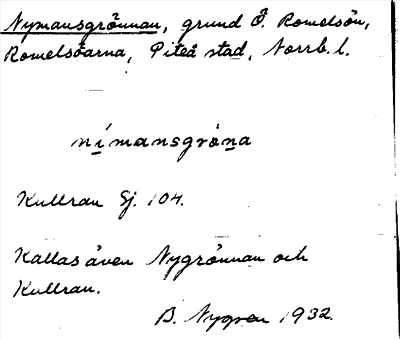 Nymansgrönnan, grund Ö. Romelsön,
Romelsöarna, Piteå stad, Norrb. l.
nímansgröna
Kullran Sj. 104.
Kallas även Nygrönnan och
Kullran.
B. Nygren 1932.